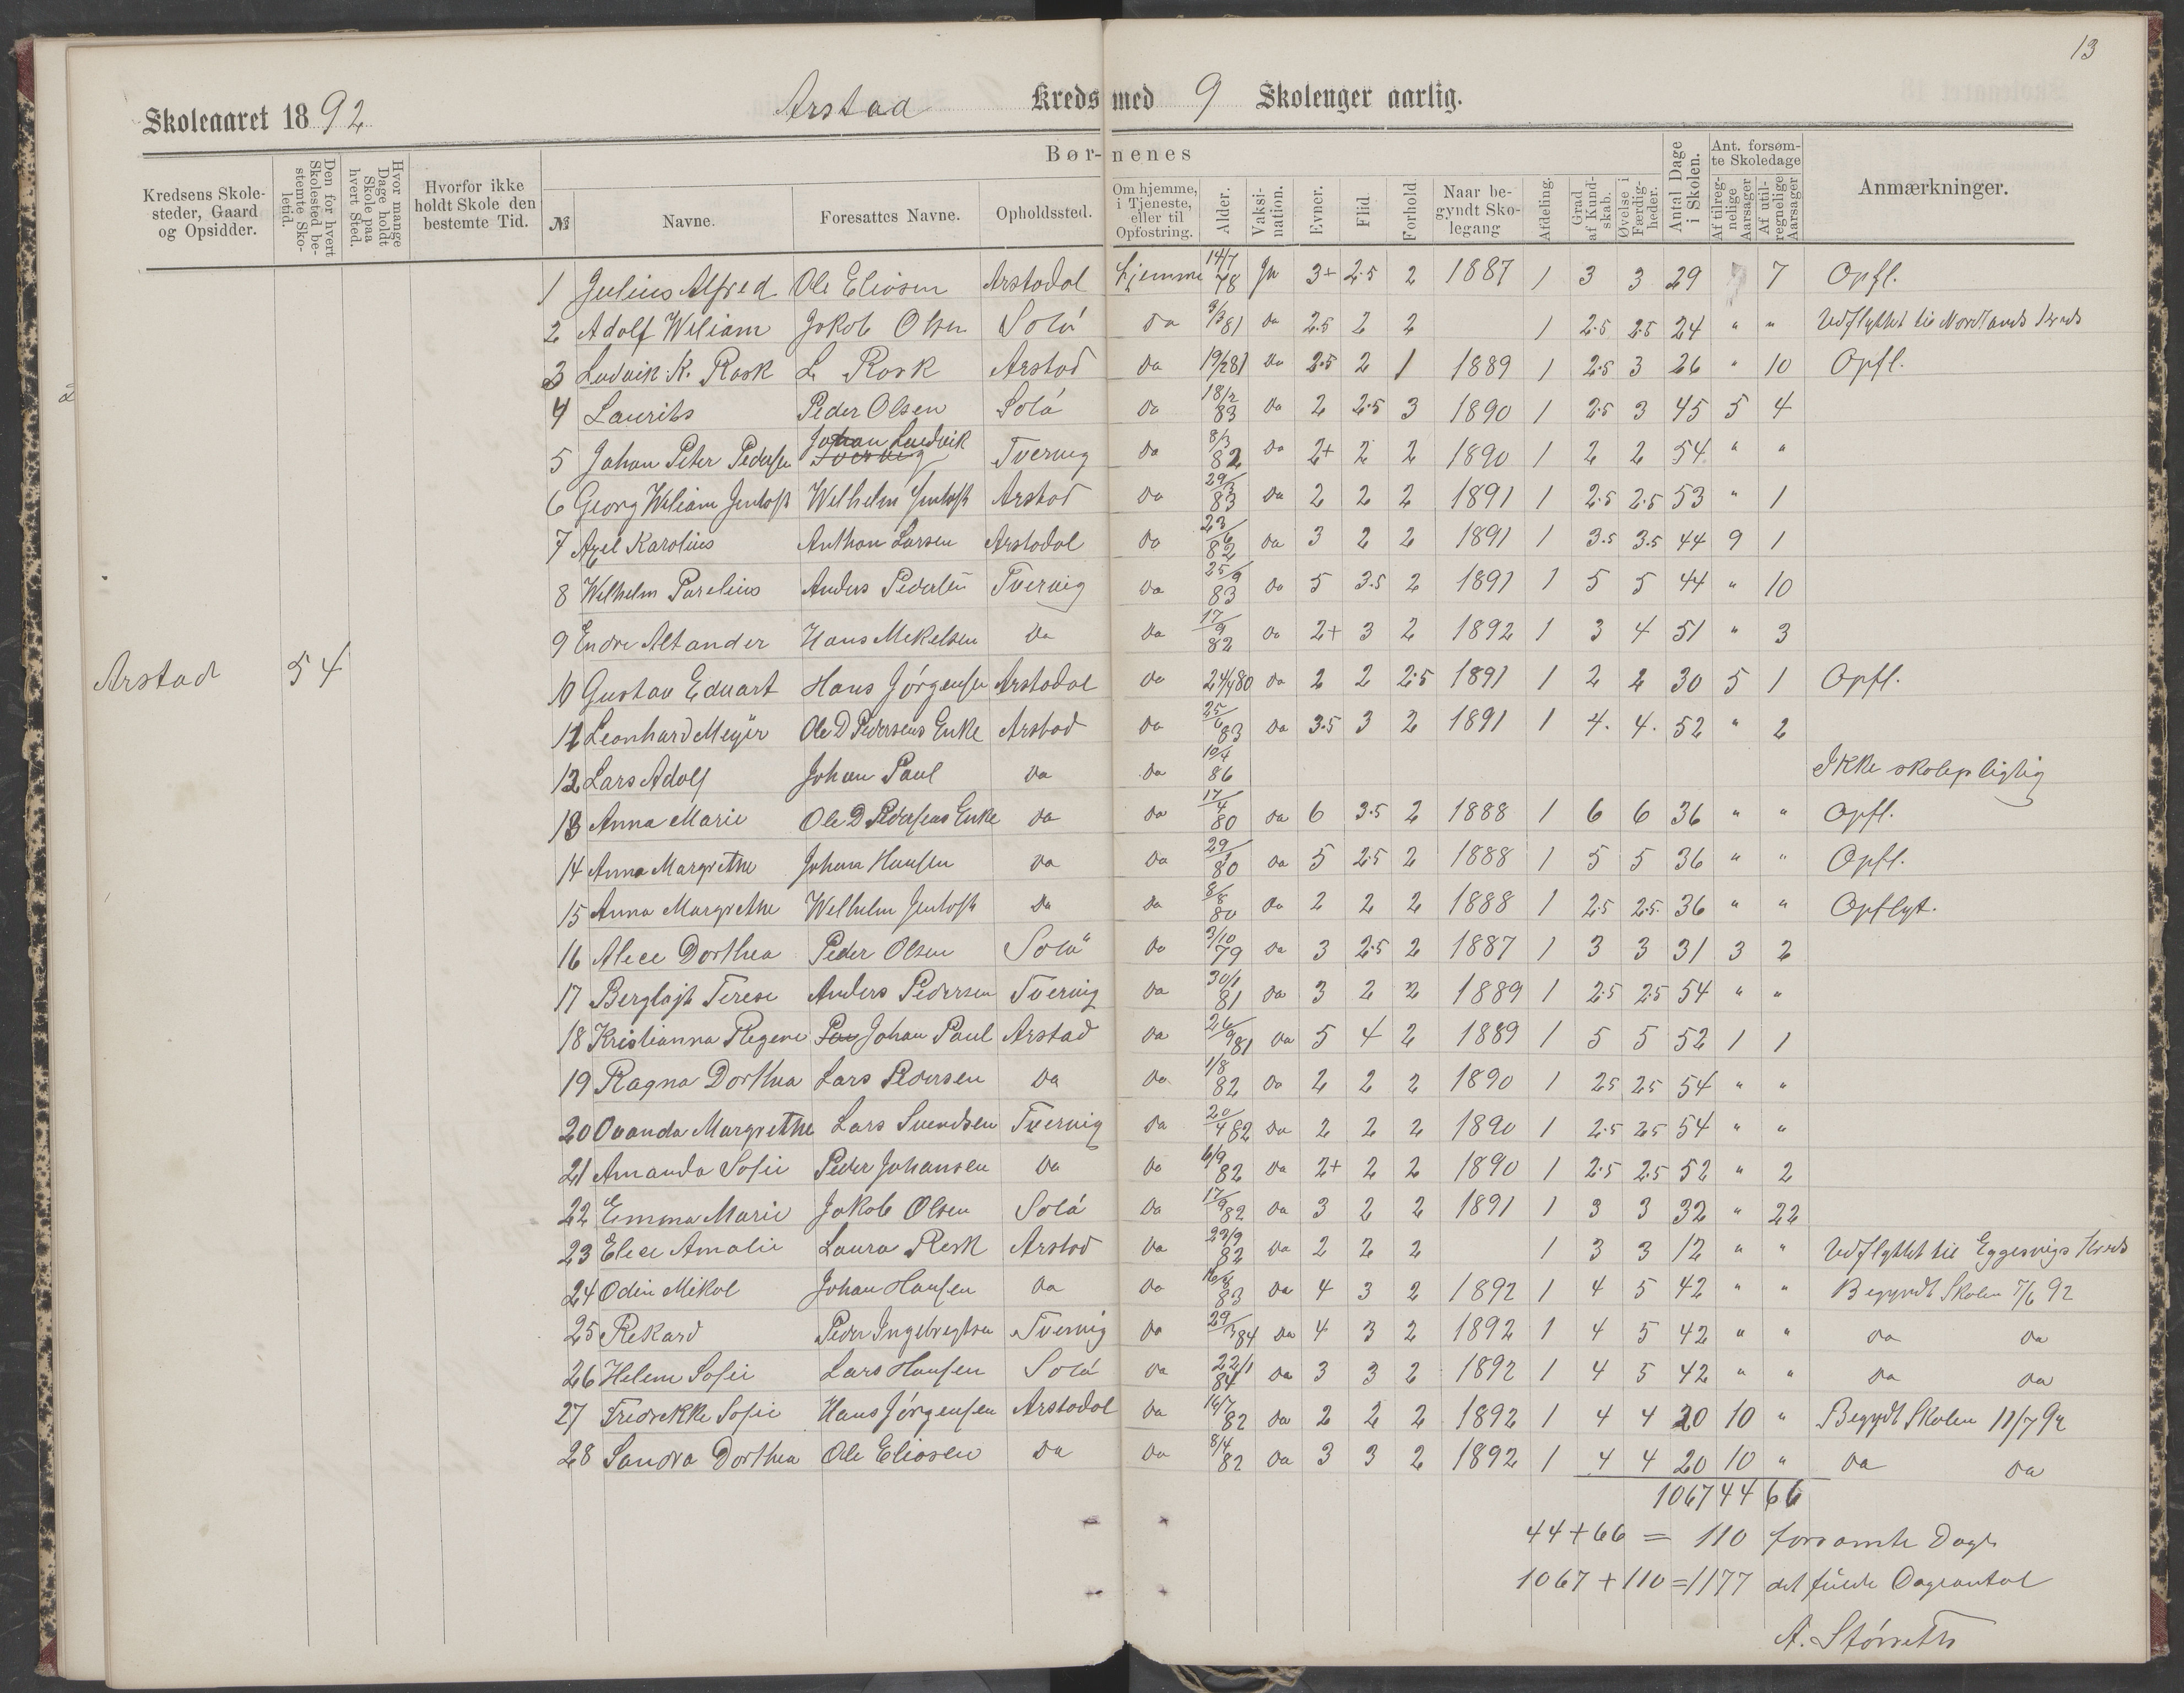 13
Skoleaaret 1892 Arstad Kreds med 9 Skolenger aarlig.
Kredsens Skolesteder, Gaard og Opsidder.
Den for hvert Skolested bestemte Skoletid.
Hvor mange Dage holdt Skole paa hvert Sted.
Hvorfor ikke holdt Skole den bestemte Tid.
Børnenes
№ Navne. Foresattes Navne. Opholdssted. Om hjemme, i Tjeneste, eller til Opfostring. Alder. Vaksination. Evner. Flid. Forhold. Naar begyndt Skolegang Afdeling. Grad af Kundskab. Øvelse i Færdigheder. Antal Dage i Skolen. Ant. forsømte Skoledage Af tilregnelige Aarsager Af utilregnelige Aarsager Anmærkninger.
1 Julius Alfred Ole Eliosen Arstadal hjemme 14/7 78 Ja 3+ 2.5 2 1887 1 3 3 29 7 Opfl.
2 Adolf Wiliam Jakob Olsen Solá da 9/3 81 da 2.5 2 2 1 2.5 2.5 24 " " Udflyttet til Nordlands Kreds
3 Ludvik K. Rask L Rask Arstad da 19/2 81 da 2.5 2 1 1889 1 2.5 3 26 " 10 Opfl.
4 Laurits Peder Olsen Solá da 18/2 83 da 2 2.5 3 1890 1 2.5 3 45 5 4
5 Johan Peter Pedersen Johan Ludvik Tvervig Tvervig da 8/3 82 da 2+ 2 2 1890 1 2 2 54 " "
6 Georg Wiliam Jentoft Welhelm Jentoft Arstad da 29/3 83 da 2 2 2 1891 1 2.5 2.5 53 " 1
7 Axel Karolius Anthon Larsen Arstadal da 23/6 82 da 3 2 2 1891 1 3.5 3.5 44 9 1
8 Welhelm Parelius Anders Pedersen Tvervig da 25/9 83 da 5 3.5 2 1891 1 5 5 44 " 10
9 Endre Altander Hans Mekelsen da da 17/9 82 da 2+ 3 2 1892 1 3 4 51 " 3
Arstad 54
10 Gustav Eduart Hans Jørgensen Arstadal da 24/4 80 da 2 2 2.5 1891 1 2 2 30 5 1 Opfl.
11 Leonhard Meyer Ole D Pedersens Enke Arstad da 25/6 83 da 3.5 3 2 1891 1 4. 4. 52 " 2
12 Lars Adolf Johan Paul da da 10/4 86 Ikke skolepligtig
13 Anna Marie Ole D Pedersens Enke da da 17/4 80 da 6 3.5 2 1888 1 6 6 36 " " Opfl.
14 Anna Margrethe Johan Hansen da da 29/1 80 da 5 2.5 2 1888 1 5 5 36 " " Opfl.
15 Anna Margrethe Welhelm Jentoft da da 8/8 80 da 2 2 2 1888 1 2.5 2.5. 36 " " Opflyt.
16 Alece Dorthea Peder Olsen Solá da 3/10 79 da 3 2.5 2 1887 1 3 3 31 3 2
17 Berglajt Terese Anders Pedersen Tvervig da 30/1 81 da 3 2 2 1889 1 2.5 2.5 54 " "
18 Kristianna Regene Pau Johan Paul Arstad da 26/9 81 da 5 4 2 1889 1 5 5 52 1 1
19 Ragna Dorthea Lars Pedersen da da 1/8 82 da 2 2 2 1890 1 2.5 2.5 54 " "
20 Ovanda Margrethe Lars Svendsen Tvervig da 20/4 82 da 2 2 2 1890 1 2.5 2.5 54 " "
21 Amanda Sofie Peder Johansen da da 6/9 82 da 2+ 2 2 1890 1 2.5 2.5 52 " 2
22 Emma Marie Jakob Olsen Solá da 17/9 82 da 3 2 2 1891 1 3 3 32 " 22
23 Elece Amalie Laura Resk Arstad da 29/9 82 da 2 2 2 1 3 3 12 " " Udflyttet til Eggesvigs Kreds
24 Odin Mekal Johan Hansen da da 16/8 83 da 4 3 2 1892 1 4 5 42 " " Begyndt Skolen 7/6 92
25 Rekard Peder Ingebregtsen Tvervig da 29/3 84 da 4 3 2 1892 1 4 5 42 " " da da
26 Helene Sofie Lars Hansen Solá da 22/1 84 da 3 3 2 1892 1 4 5 42 " " da da
27 Fredrekke Sofie Hans Jørgensen Arstadal da 16/7 82 da 2 2 2 1892 1 4 4 20 10 " Begyndt Skolen 11/7 92
28 Sandra Dorthea Ole Eliosen da da 8/4 82 da 3 3 2 1892 1 4 4 20 10 " da da
1067 44 66
44+66 = 110 forsømte Dage
1067 + 110 = 1177 det fulde Dageantal